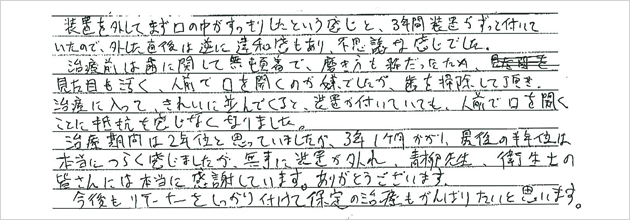 装置を外して、まず口の中がすっきりしたという感じと、3年間装置がずっと付いて
いたので、外した直後は逆に違和感もあり、不思議な感じでした。
治療前は歯に関して無頓着で、磨き方も雑だったため、
見た目も汚く、人前で口を開くのが嫌でしたが、歯を掃除して頂き、
治療に入って、きれいに並んでくると、装置が付いていても、人前で口を開く
ことに抵抗を感じなくなりました。
治療期間は2年位と思っていましたが、3年1ヶ月かかり、最後の半年位は
本当につらく感じましたが、無事に装置が外れ、青柳先生、衛生士の
皆さんには本当に感謝しています。ありがとうございます。
今後もリテーナーをしっかり付けて保定の治療もがんばりたいと思います。